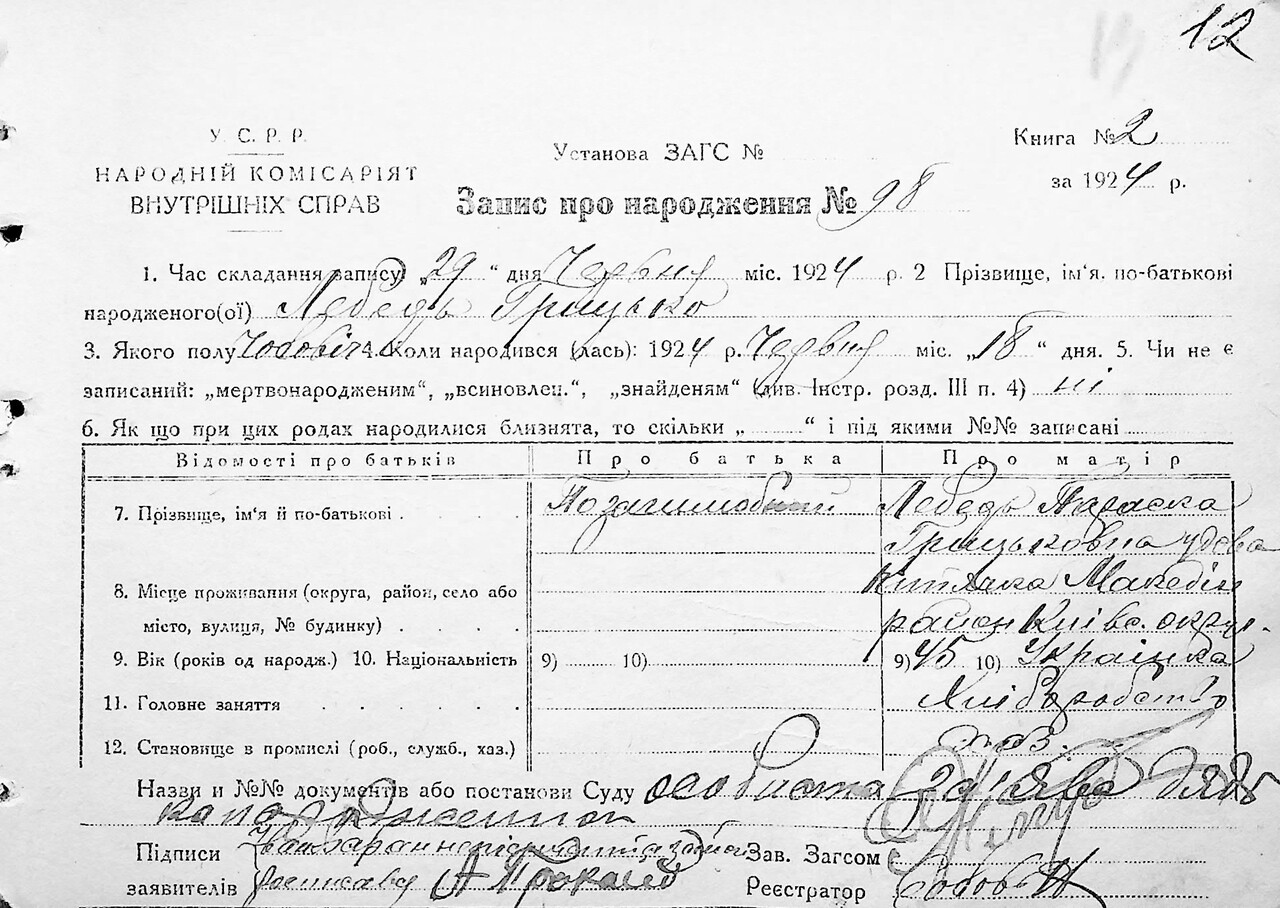 12
У. С. Р. Р.
НАРОДНІЙ КОМІСАРІЯТ
ВНУТРІШНІХ СПРАВ
Установа ЗАГС №
Книга № 2
за 1924 р.
Запис про народження № 98
1. Час складання запису „29“ дня Червня міс. 1924 р. 2 Прізвище, ім‘я. по-батькові
народженого(ої) Лебедь Грицько
3. Якого полу Чоловіч 4. Коли народився (лась): 1924 р. Червня міс. „18“ дня. 5. Чи не є
записаний: „мертвонародженим“, „всиновлен.“, „знайденям“ (див. Інстр. розд. III п. 4) ні
6. Як що при цих родах народилися близнята, то скільки „ “ і під якими №№ записані
Відомості про батьків Про батька Про матір
7. Прізвище, ім‘я й по-батькові Позашлюбний Лебедь Параска
Грицьковна удова
8. Місце проживання (округа, район, село або
місто, вулиця, № будинку) район Київс. округ.
9. Вік (років од народж.) 10. Національність 9) 10) 9) 45 10) Українка
11. Головне заняття Хліборобство
12. Становище в промислі (роб., служб., хаз.) хаз.
Назви и №№ документів або постанови Суду особиста заява
Підписи
заявителів
Зав. Загсом
Реєстратор